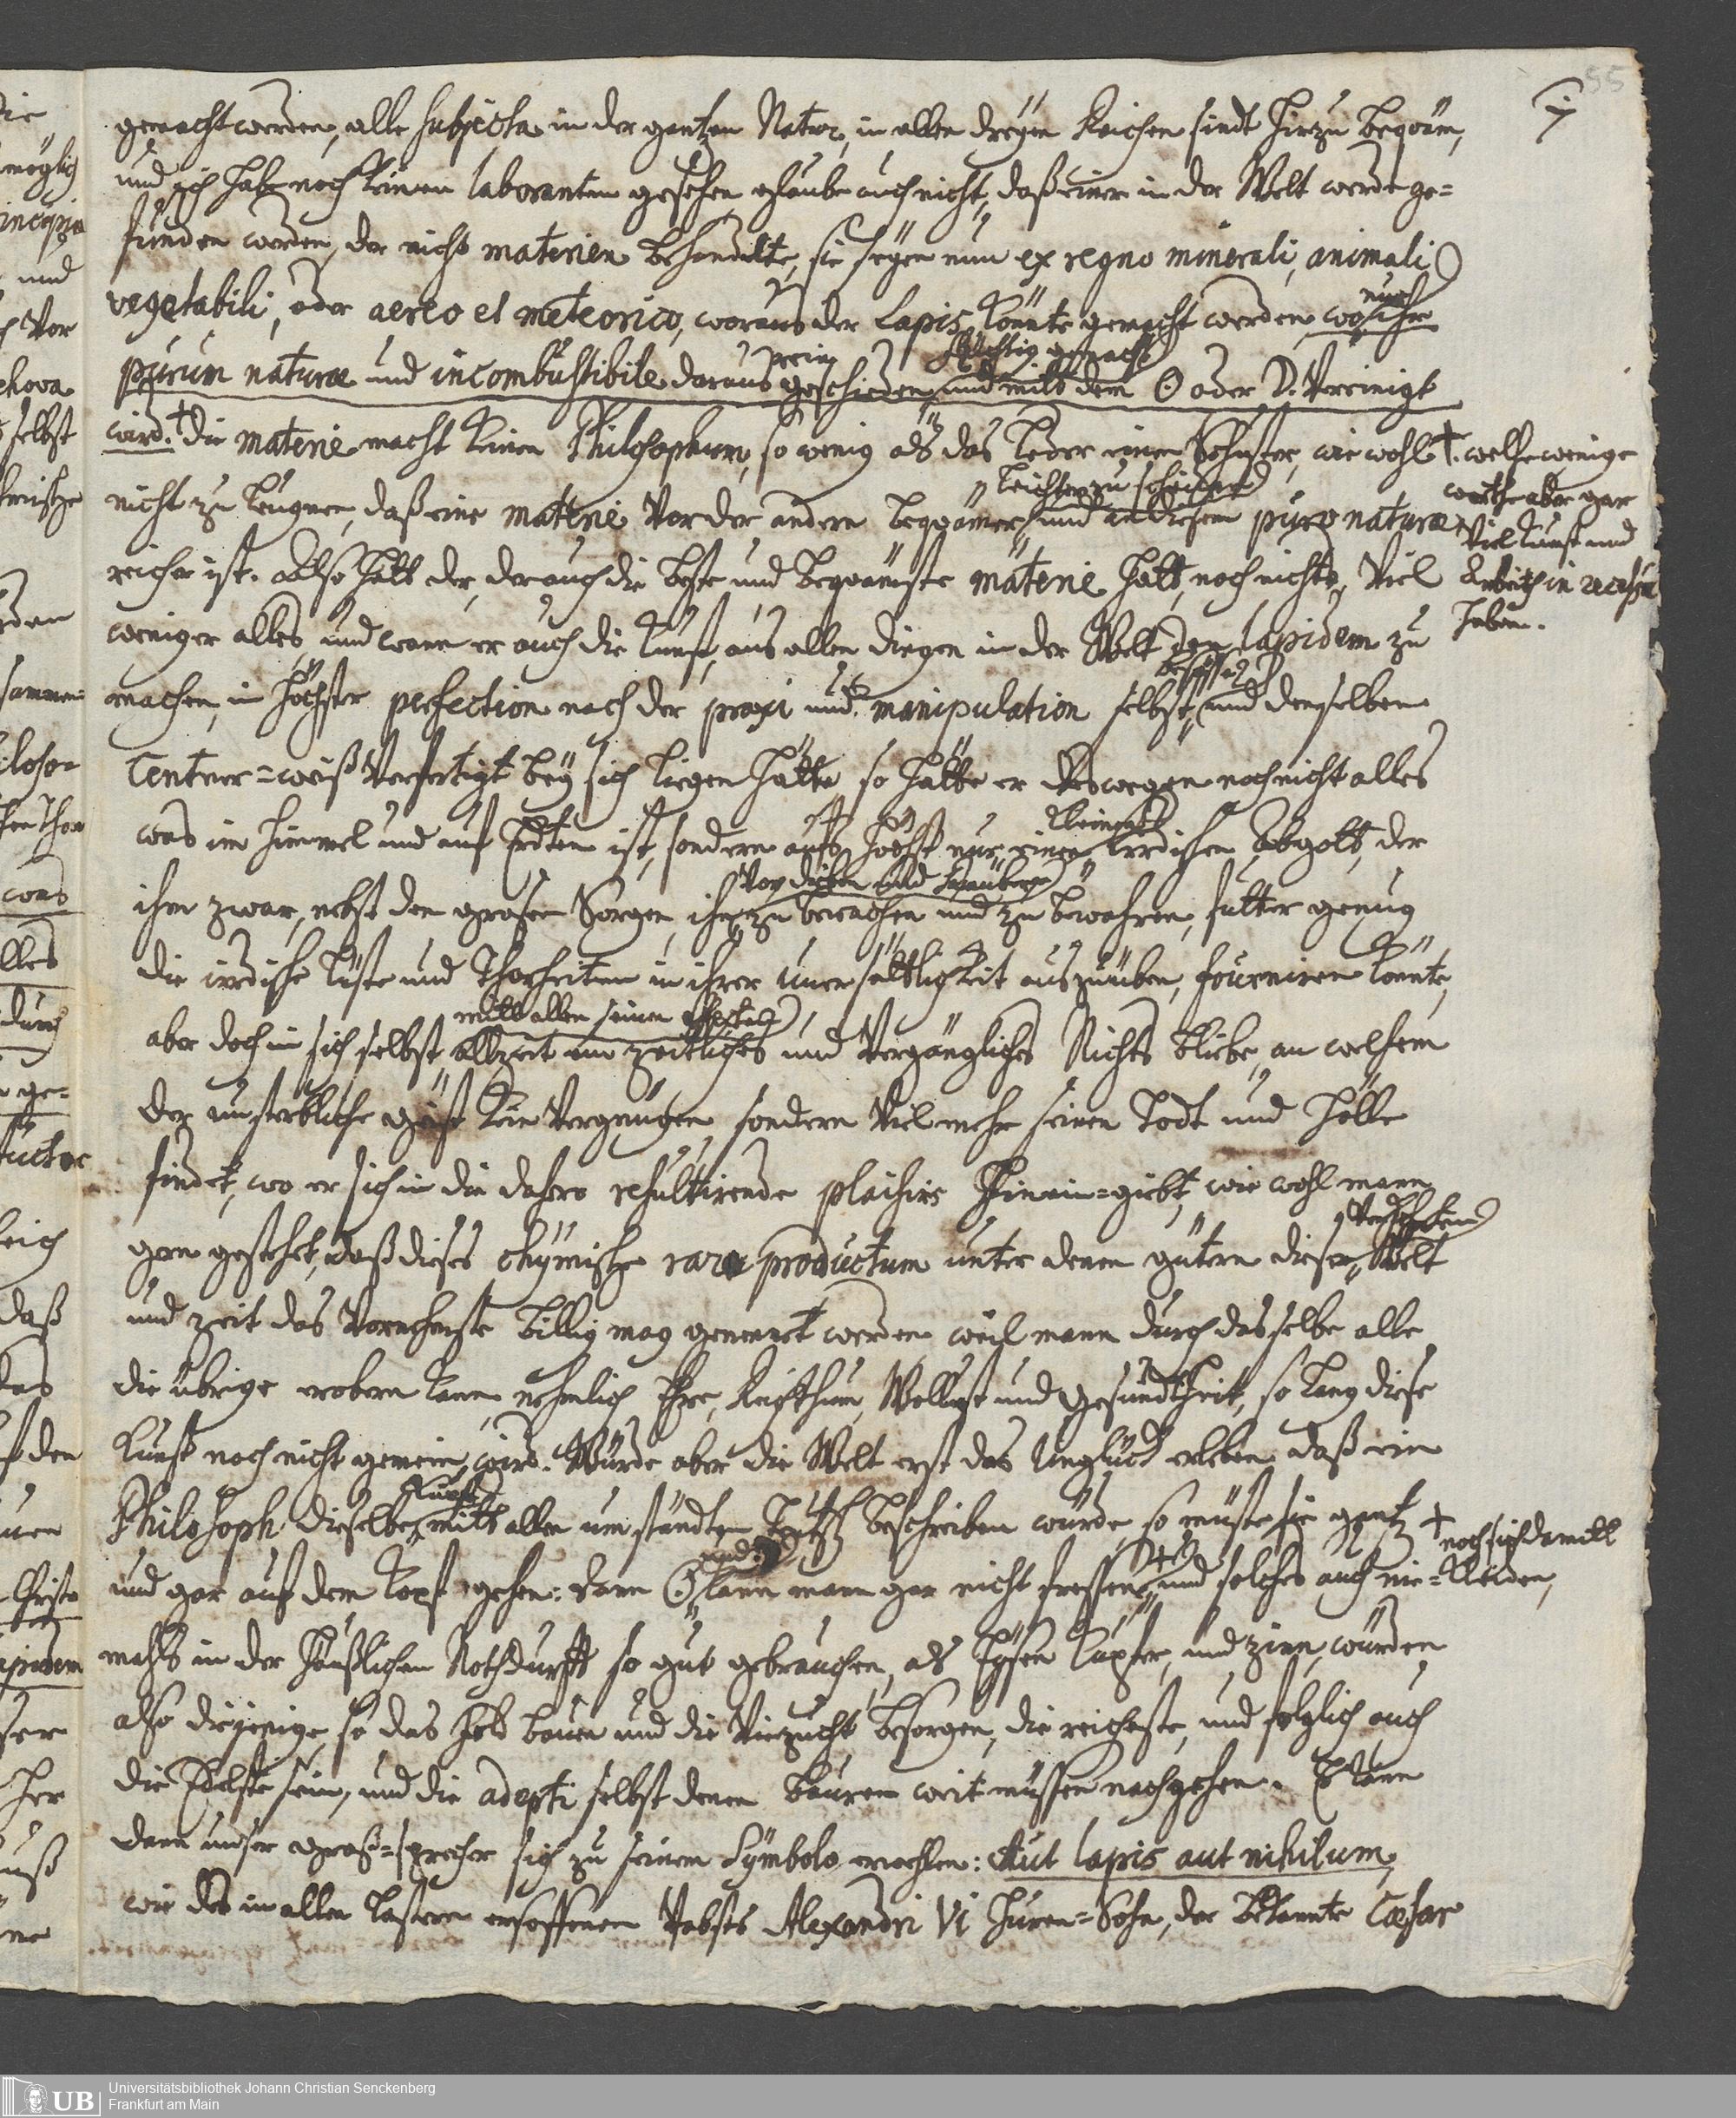 55
7
gemacht werden, alle subjecta in der gantzen Natur, in allen dreyen Reichen sindt hirzu beqväm,
und ich habe noch keinen laboranten gesehen glaube auch nicht, daß einer in der Welt werde ge-
funden werden, der nicht materien behandelte, sie seyen nun ex regno minerali, animali
vegetabili, oder aereo et meteorico, woraus der Lapis könte gemacht werden, wo nur ihr
purum naturæ und incombustibile daraus rein geschieden, flüchtig gemacht und mitt dem ☉ oder ☽. vereinigt
wird. † die materie macht keinen Philosophum, so wenig als das Leder einen Schuster, wie wohl
†. welche wenige
werthe aber gar
viel Kunst und
Arbeith in recessu
haben.
nicht zu leugnen, daß eine materie vor der andern beqvämer, leichter zu scheiden und an diesem puro naturæ
reicher ist. Also hatt der, der auch die beste und beqvämste materie hatt, noch nichts, viel
weniger alles, und wann er auch die Kunst, aus allen dingen in der Welt den lapidem zu
machen, in höchster perfection nach der praxi und manipulation selbst, besässe und denselben
Centner-weiß verfertigt bey sich liegen hätte, so hätte er deswegen noch nicht alles
was im himmel und auf Erdten ist, sondern aufs höchst nur einen kleinen irrdischen Abgott, der
ihm zwar, nebst den grosen Sorgen, ihn vor dieben und Räubern zu bewachen und zu bewahren, futter genug
die irrdische lüste und Thorheiten in ihrer unersättligkeit auszuüben, fourniren könte,
aber doch in sich selbst mitt allen seinen effecten allzeit ein zeitliches und vergängliches Nichts bliebe, an welchem
der unsterbliche geist kein vergnügen, sondern viel mehr seinen Todt und Hölle
findet, wo er sich in die dahero resultirende plaisirs hinein-giebt, wie wohl mann
gern gestehet, daß dieses chymische rare productum unter denen gütern dieser Welt
und zeit das vornehmste billig mag genennet werden weil mann durch dasselbe alle
die übrige erobern kann, nehmlich Ehre, Reichthum, Wollust und Gesundtheit, so lang diese
Kunst noch nicht gemein wird. Würde aber die Welt erst das Unglück erleben, daß ein
Philosoph dieselbe Kunst mitt allen umständten beschreiben würde, so müste sie gantz
und gar auf dem Kopf gehen: dann ☉ und ☽ kann mann gar nicht fressen, † und solches auch nie-
† noch sich damitt
kleiden,
mahls in der häußlichen Nothdurfft so gut gebrauchen, als Eysen Kupfer, und zinn, würden
also diejenige, so das Feld bauen und die Viezucht besorgen, die reicheste, und folglich auch
die Edelste sein, und die adepti selbst denen Bauren weit müssen nachgehen. Es kann
dann unser groß-sprecher sich zu seinem Symbolo erwehlen: Aut lapis aut nihilum,
wie des in allen lastern ersoffenen Pabsts Alexandri VI huren-Sohn, der bekannte Cæsar
UB
Universitätsbibliothek Johann Christian Senckenberg
Frankfurt am Main